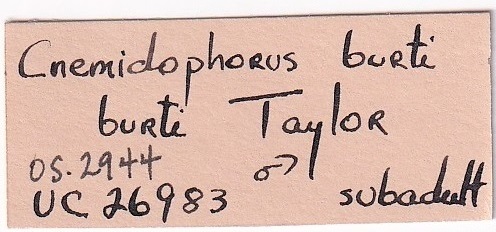 Cnemidophorus burti
burti Taylor
OS.2944 ♂
UC 26983 subadult